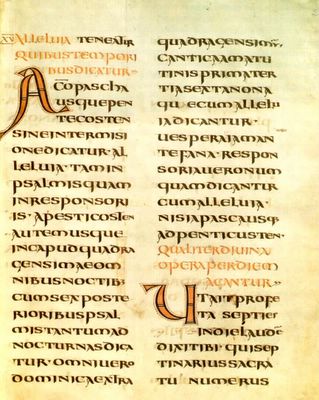 XV ALLELUIA
QUIBUS TEMPORI
BUS DICATUR
A CO PASCHA
USQUE PEN
TECOSTEN
SINE INTERMISI
ONE DICATUR · AL
LELUIA · TAM IN
PSALMIS QUAM
IN RESPONSORI
IS · A PESTICOSTEN
AUTEM USQUE
IN CAPUD QUADRA
GENSIMAE OM
NIBUS NOCTIB:
CUM SEX POSTE
RIORIBUS PSAL
MIS TANTUM AD
NOCTURNAS DICA
TUR · OMNI UERO
DOMINICA EXTRA
QUADRAGENSIM,
CANTICA MATU
TINIS PRIMA TER
TIA SEXTA NONA
QUE CUM ALLELU
IA DICANTUR ·
UESPERA IAM AN
TEFANA · RESPON
SORIA UERO NUM
QUAM DICANTUR
CUM ALLELUIA ·
NISI A PASCA USQ:
AD PENTICUSTEN ·
QUALITER DIUINA
OPERA PER DIEM
AGANTUR
UT AIT PROFE
TA SEPTIES
IN DIE LAUDEM
DIXI TIBI · QUI SEP
TINARIUS SACRA
TU NUMERUS